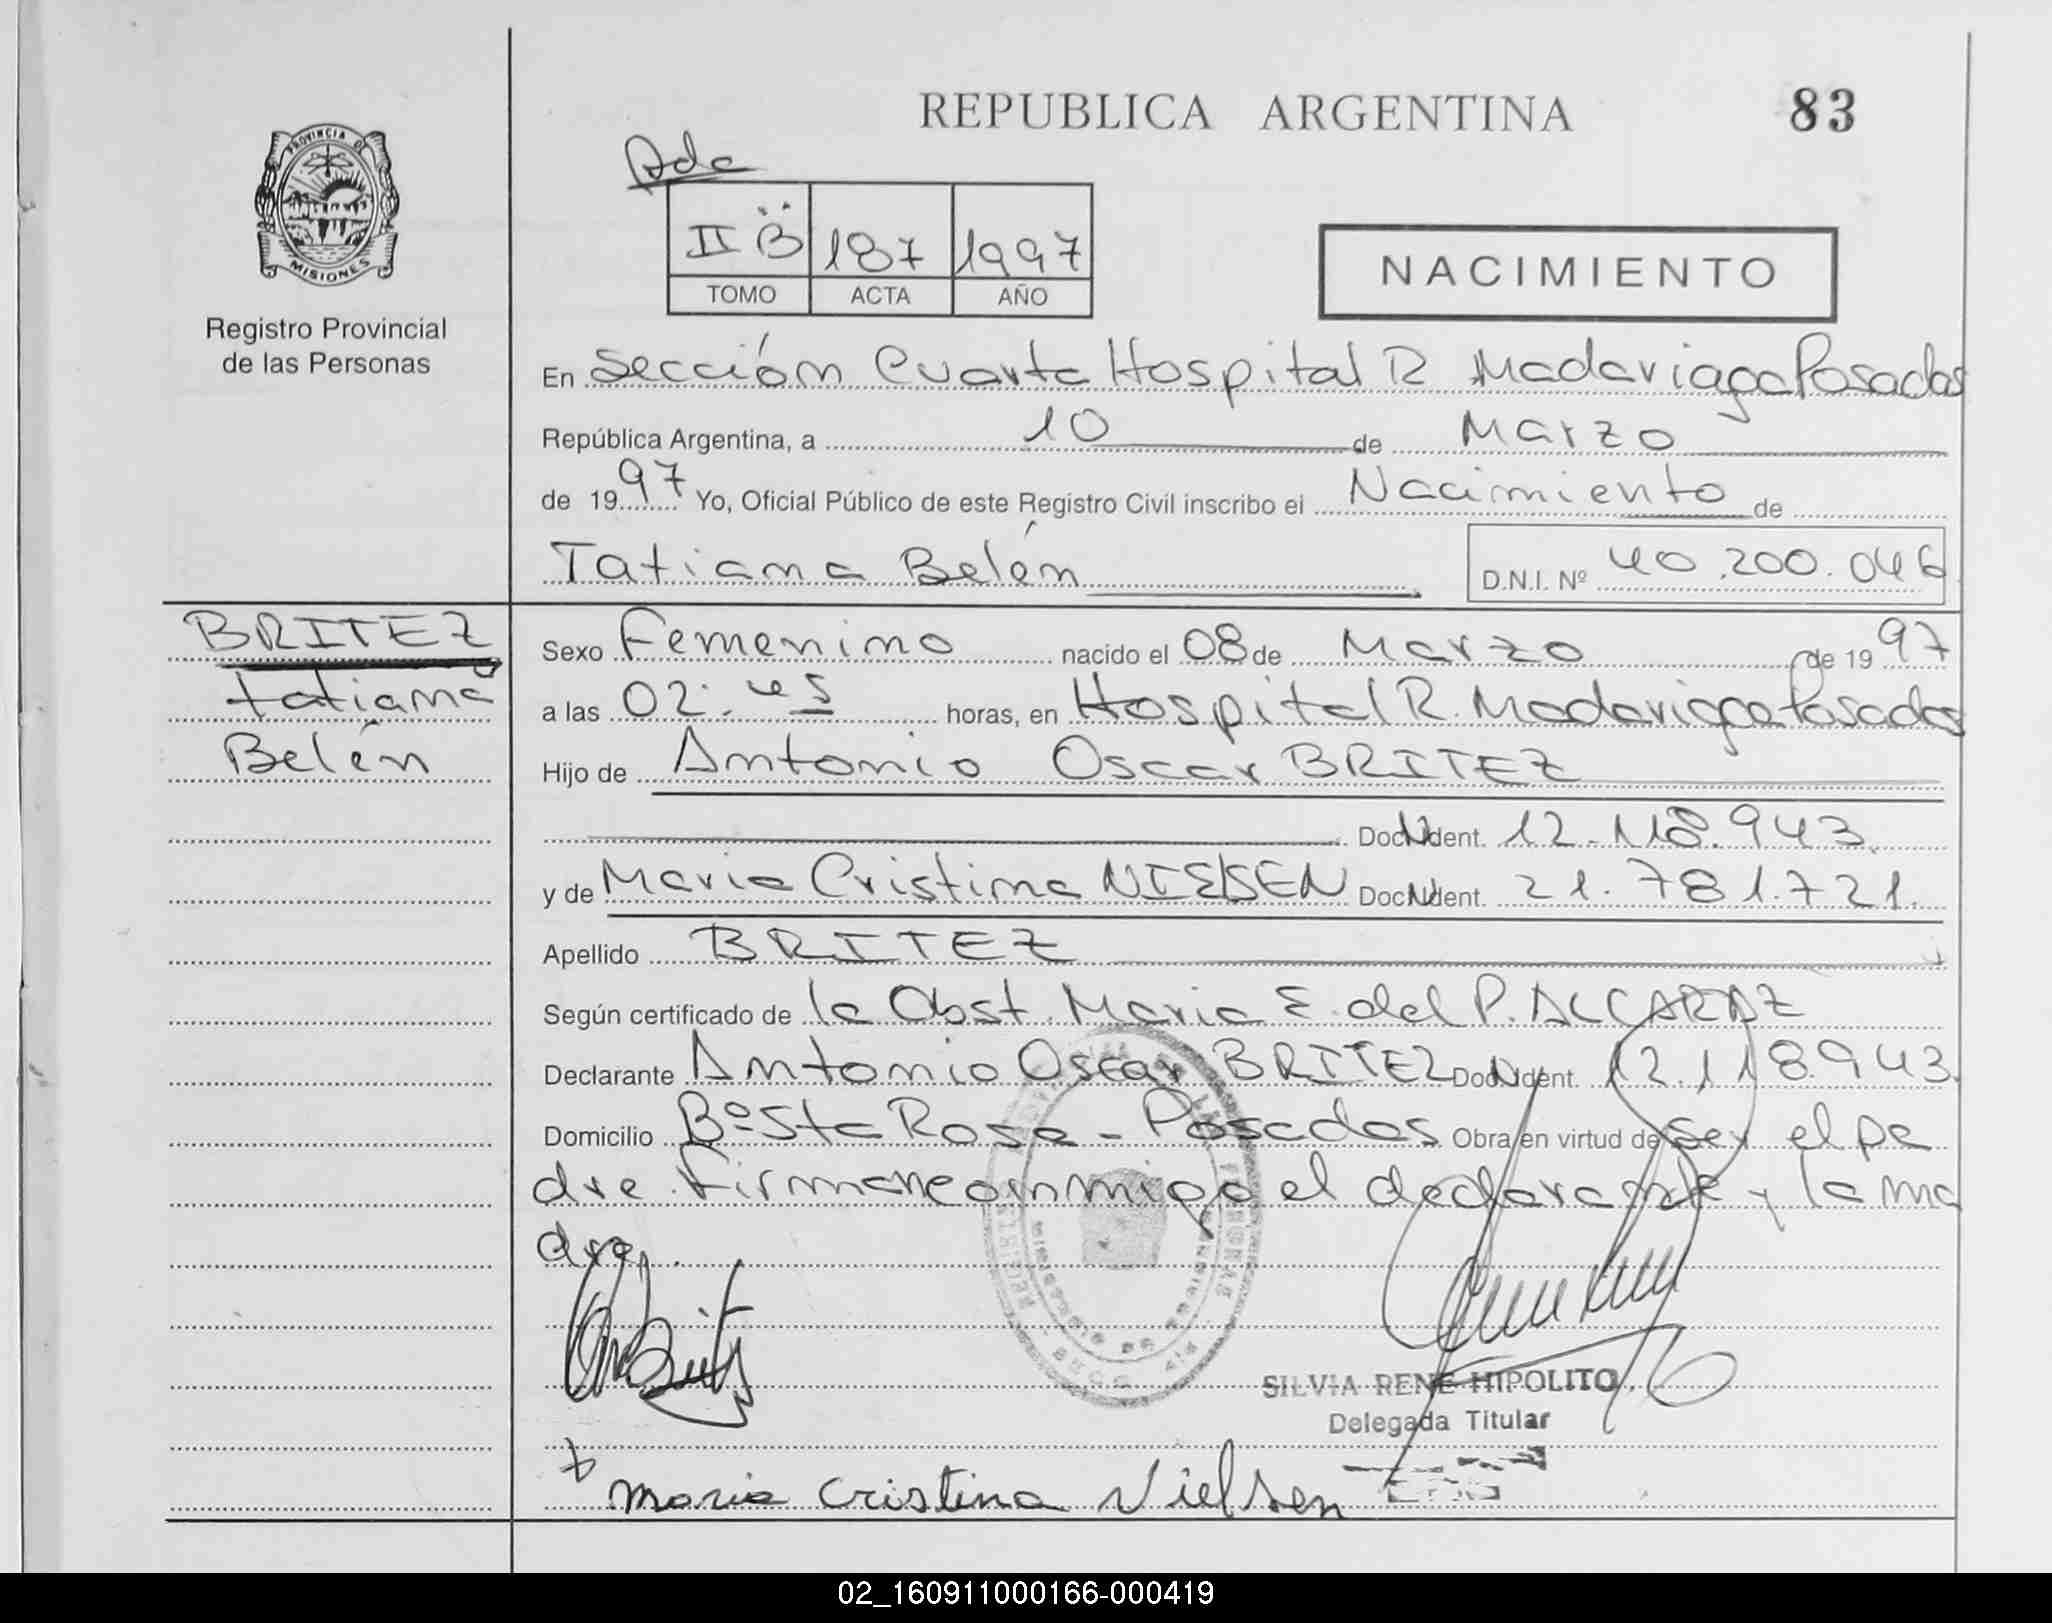 REPUBLICA ARGENTINA
83
PROVINCIA DE
MISIONES
Registro Provincial
de las Personas
II B 187 1997
TOMO ACTA AÑO
NACIMIENTO
En Sección Cuarta Hospital R Madariaga Posadas
República Argentina, a 10 de Marzo
de 1997 Yo, Oficial Público de este Registro Civil inscribo el Nacimiento de
Tatiana Belén D.N.I. Nº 40.200.046
BRITEZ
Tatiana
Belén
Sexo Femenino nacido el 08 de Marzo de 1997
a las 02:45 horas, en Hospital R. Madariaga Posadas
Hijo de Antonio Oscar BRITEZ
Doc. Ident. 12.118.943.
y de Maria Cristina NIELSEN Doc. Ident. 21.781.721.
Apellido BRITEZ
Según certificado de la Obst. Maria E. del P. ALCARAZ
Declarante Antonio Oscar BRITEZ Doc. Ident. 12.118.943
Domicilio Bº Sta Rosa - Posadas Obra en virtud de ser el pa
dre. Firman conmigo el declarante y la ma
dre.
SILVIA RENE HIPOLITO
Delegada Titular
Maria Cristina Nielsen
02_160911000166-000419